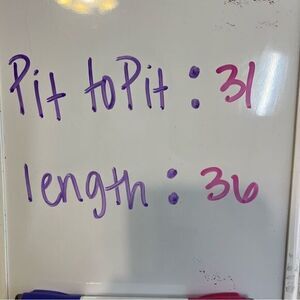 Pit to Pit : 31
length : 36